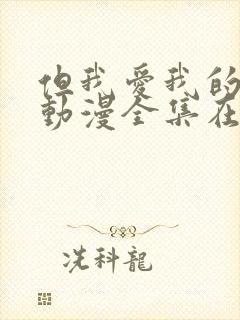 但我愛我的
動漫全集在
冼科龍